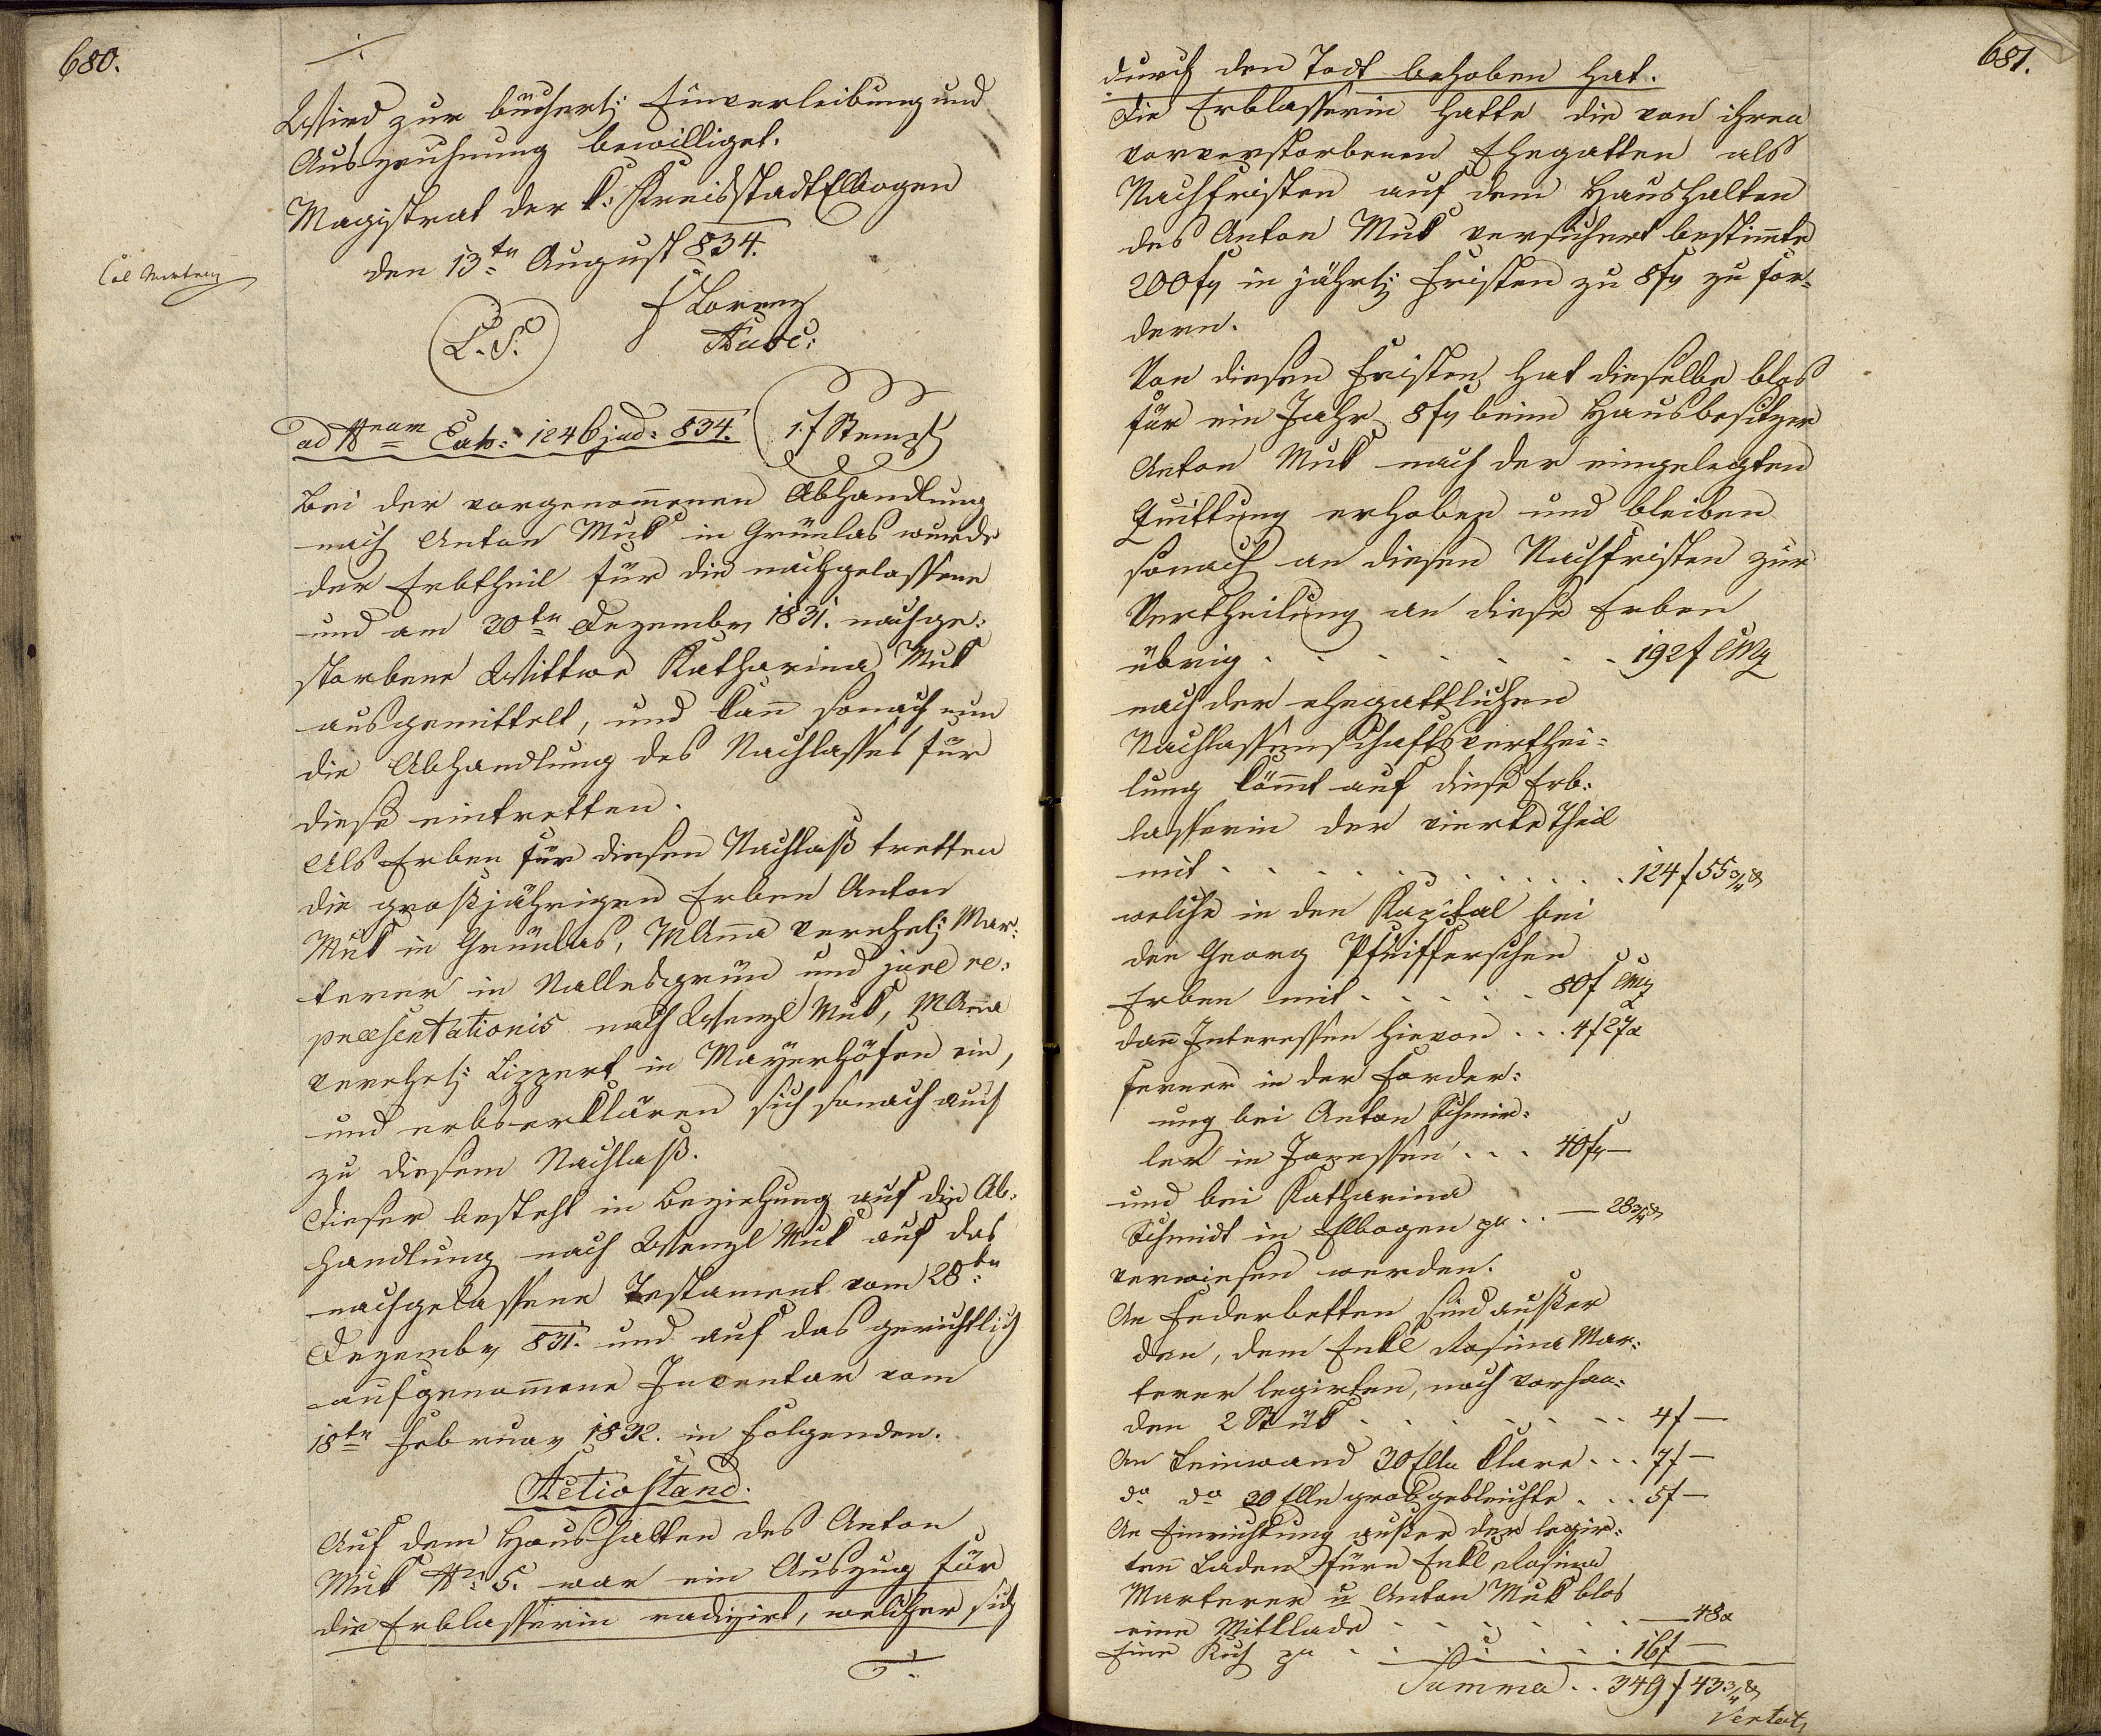 680.
./.
Wird zur bücherl: Einverleibung und
Auszeichnung bewilliget.
Magistrat der k: Kreisstadt Elbogen
den 13tn August 834.
Lorenz
L. S.
ad Nrum Exh: 1246 jud: 834. 1 f Stempl
Bei der vorgenom̅enen Abhandlung
nach Anton Muk in Grünlas wurde
der Erbtheil für die nachgelassene
und am 30tn Dezember 1831. nachge:
storbene Wittwe Katharina Muk
ausgemittelt, und kan̅ sonach nun
die Abhandlung des Nachlasses für
diese eintretten.
Als Erben für diesen Nachlaß tretten
die großjährigen Erben Anton
Muk in Grünlas, M An̅a verehel: Mar:
terer in Nallesgrün und jure re:
præsentationis nach Wenzl Muk, M An̅a
verehel: Lippert in Mayerhöfen ein,
und erbserklären sich sonach auch
zu diesem Nachlaß.
Dieser besteht in Beziehung auf die Ab:
handlung nach Wenzl Muk auf das
nachgelassene Testament vom 28tn
Dezember 831. und auf das gerichtlich
aufgenom̅ene Inventar vom
18tn Februar 1832. in Folgenden.
Activstand.
Auf dem Haushalten des Anton
Muk Nr: 5. war ein Auszug für
die Erblasserin radizirt, welcher sich
./.
681.
durch den Todt behoben hat.
Die Erblasserin hatte die von ihren
vorverstorbenen Ehegatten als
Nachfristen auf dem Haushalten
des Anton Muk versichert bestim̅te
200 f in jährl: Fristen zu 8 f zu for=
dern.
Von diesen Fristen hat dieselbe blos
für ein Jahr 8 f beim Hausbesitzer
Anton Muk nach der eingelegten
Quittung erhoben und bleiben
sonach an diesen Nachfristen zur
Vertheilung an diese Erben
übrig . . . . . . . . 192 f CMz
nach der ehegattlichen
Nachlassenschaftsverthei=
lung köm̅t auf diese Erb:
lasserin der vierte Theil
mit . . . . . . . . . . . 124 f 55 3/4 x
welche in den Kapital bei
den Georg Pfeifferschen
Erben mit . . . . . 80 f CMz
dan̅ Interessen hievon . . . 4 f 27 x
ferner in der Forder:
ung bei Anton Schmie=
ler in Janessen . . . 40 f —
und bei Katharina
Schmidt in Elbogen pr . . — 28 3/4 x
verwiesen werden.
An Federbetten sind außer
den, dem Enkl Rosina Mar:
terer legirten, noch vorhan:
den 2 Stük . . . . . . . . 4 f —
An Leinwand 30 Elln klare . . . 7 f —
do do 30 Elle grobgebleichte . . . 5 f —
An Einrichtung außer der legir=
ten̅ Laden fürn Enkl Rosina
Marterer u Anton Muk blos
eine Mittllade . . . . . . . — 48 x
Eine Kuh pr . . . . . . . 16 f —
Summa . . 349 f 43 3/4 x
Vertat.